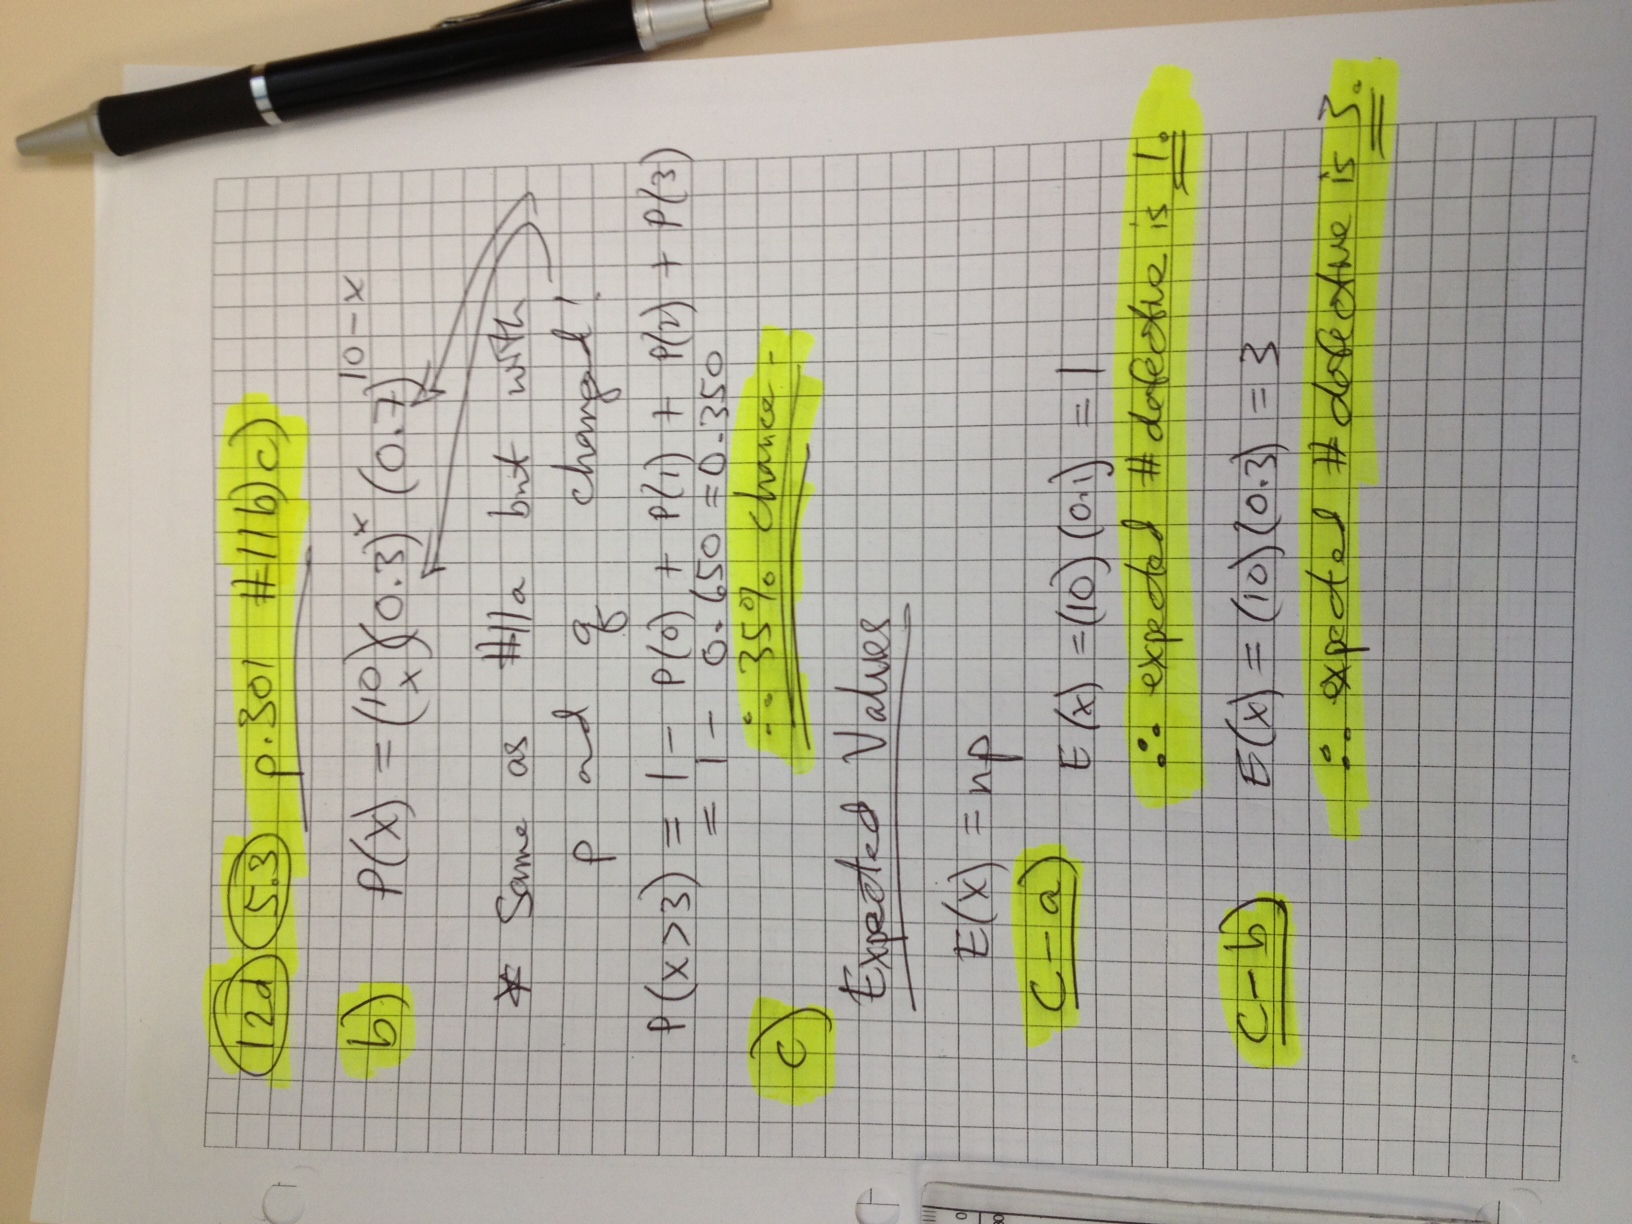 12d 5.3 p.301 #11b)c)
b) P(x) = (10 x)(0.3)^x (0.7)^10-x
* Same as #11a but with
p and q changed!
P(x>3) = 1 - P(0) + P(1) + P(2) + P(3)
= 1 - 0.650 = 0.350
∴ 35% chance.
c)
Expected Values
E(x) = np
C-a) E(x) = (10)(0.1) = 1
∴ expected # defective is 1.
C-b) E(x) = (10)(0.3) = 3
∴ expected # defective is 3.